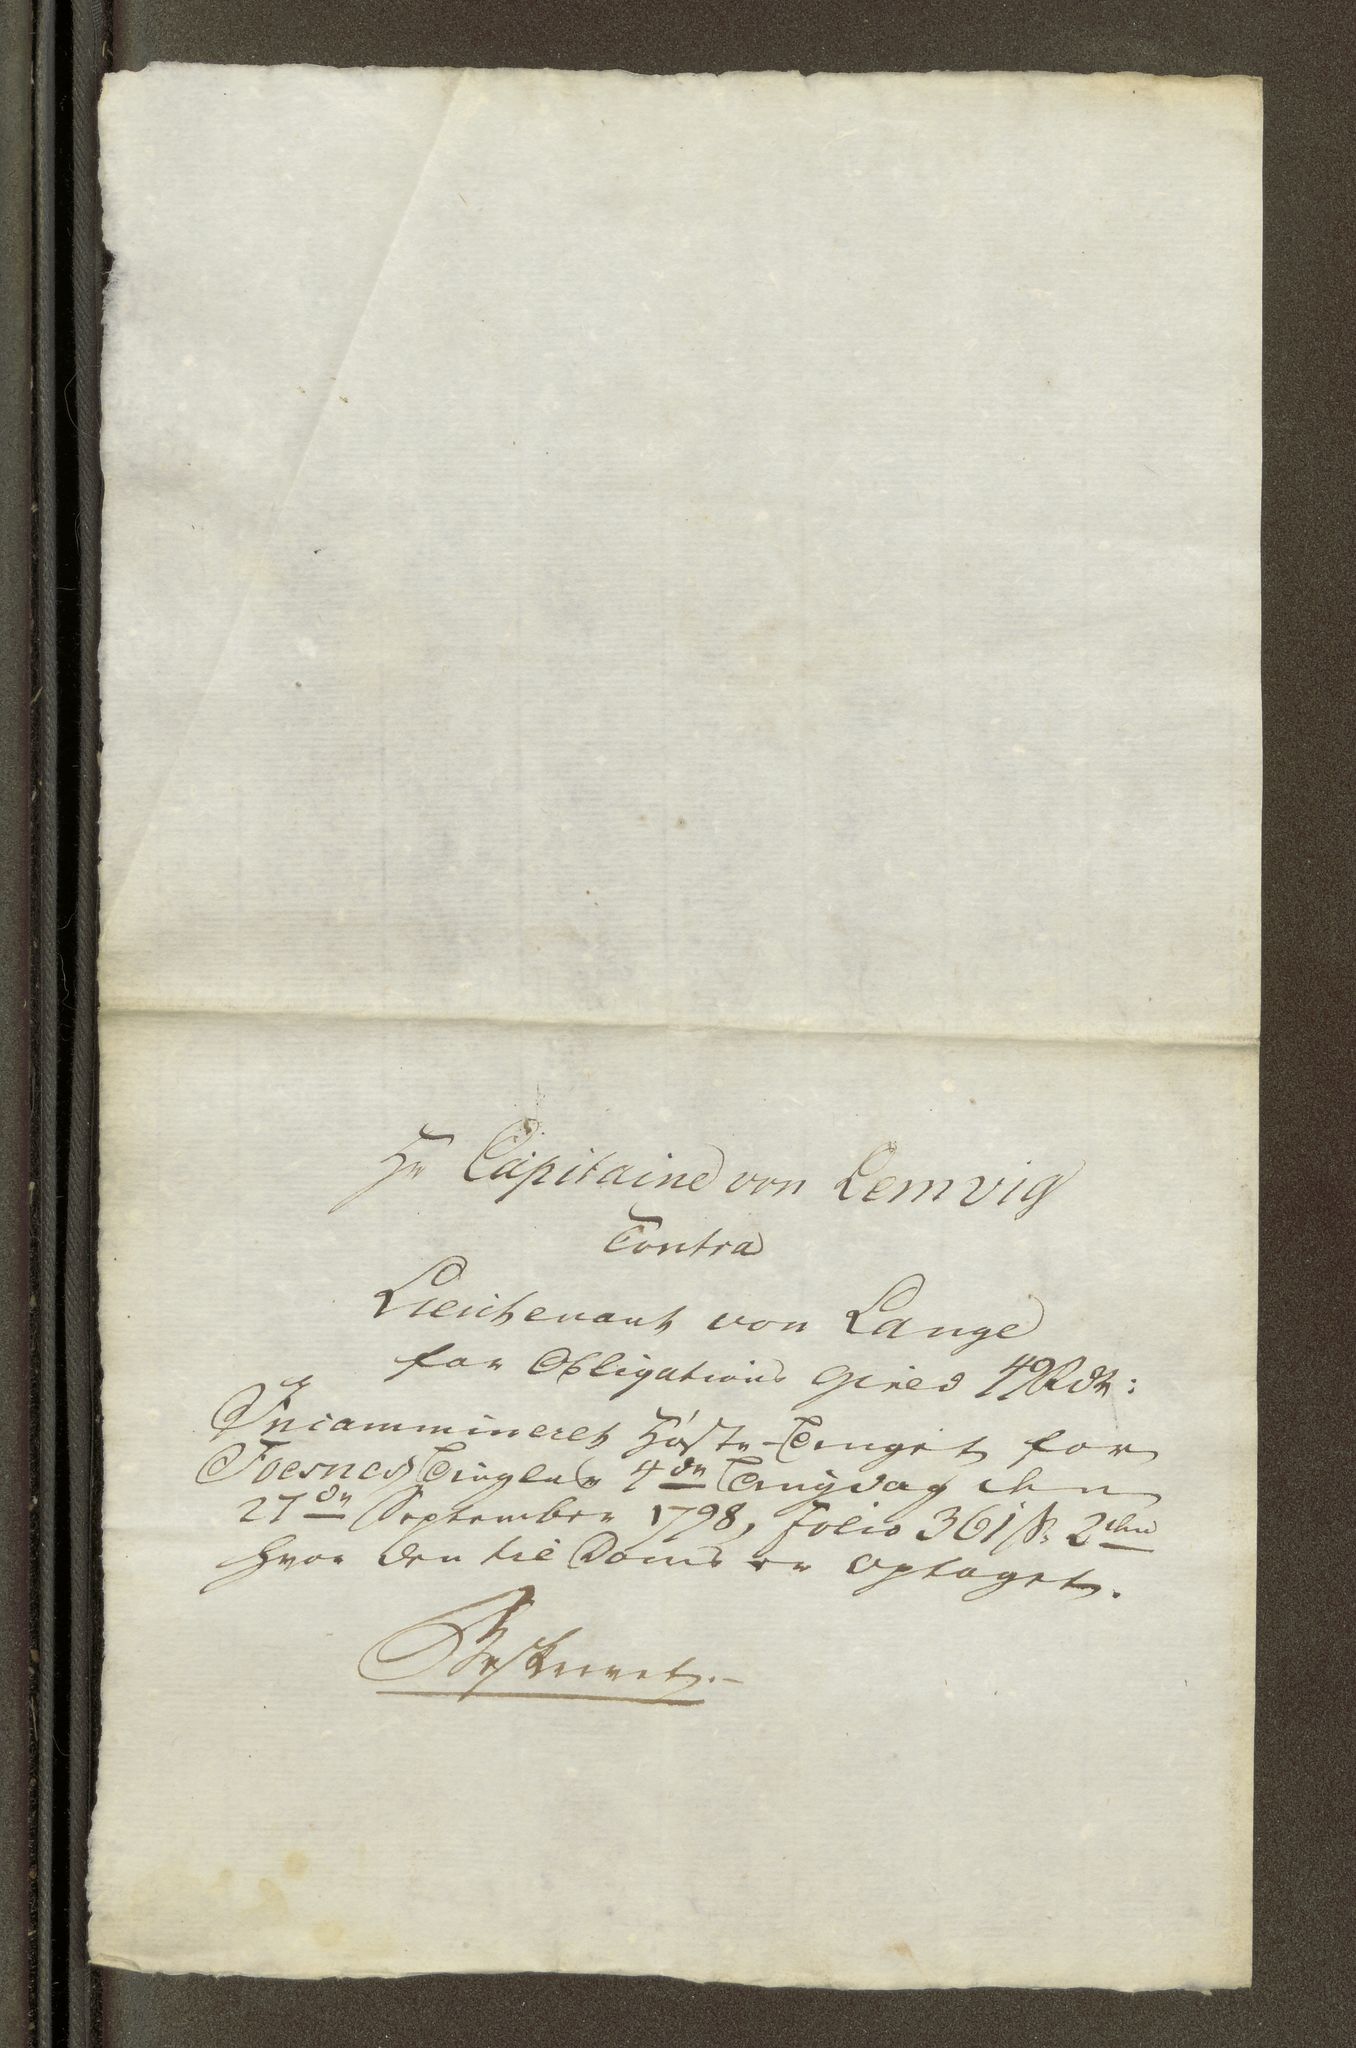 Hr Capitaine von Lemvig
Contra
Lieutenant von Lange
for Obligations Gield 49 Rdr:
Incammineret Høste-Tinget for
Foesnes Tinglaug 4de Tingdag den
27de September 1798, Folio 361 No 2den
hvor den til Doms er optaget.
Beskrevet.-